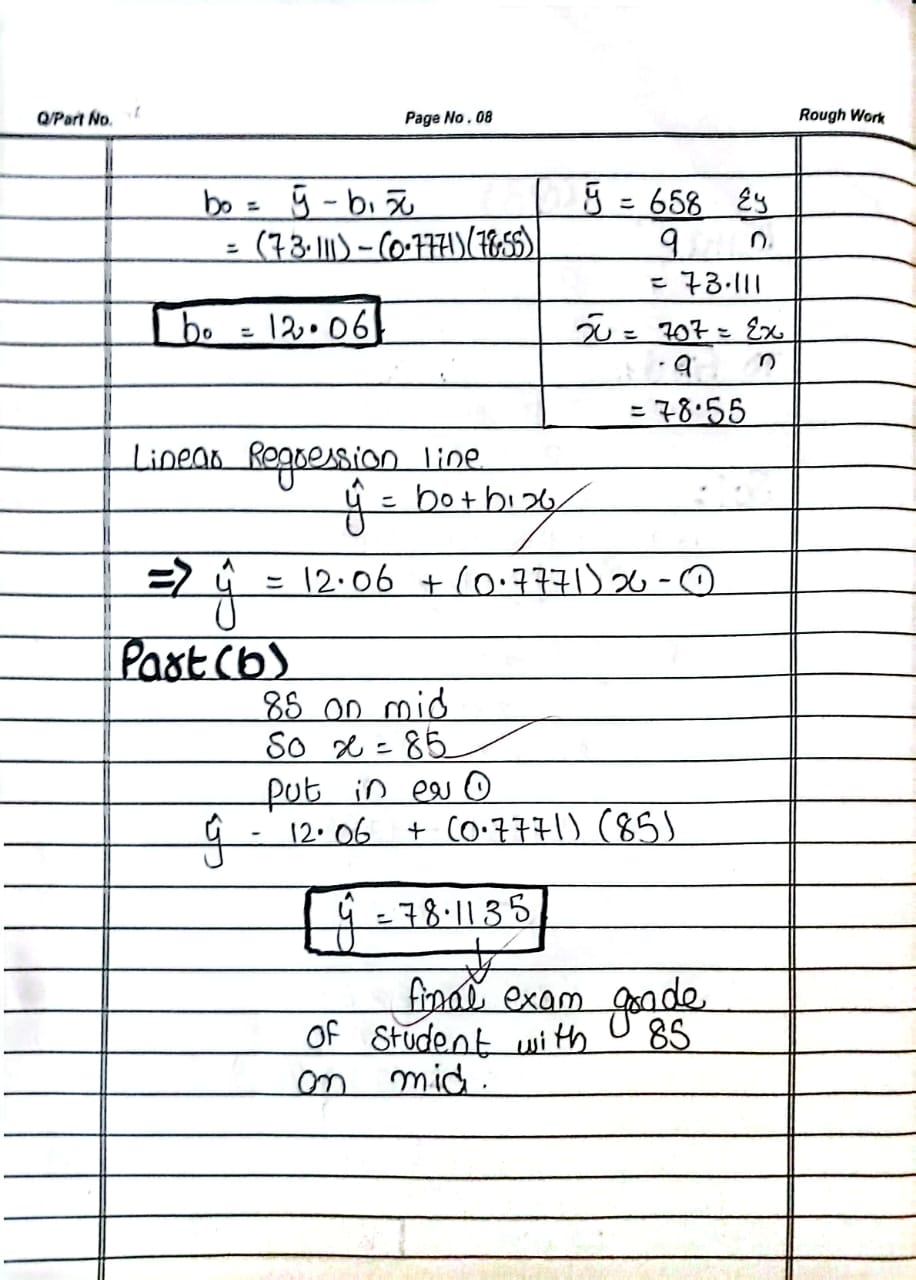 Q/Part No.
Page No. 08
Rough Work
b₀ = ȳ - b₁ x̄
= (73.111) - (0.7771)(78.55)
b₀ = 12.06
ȳ = 658/9 Σy/n
= 73.111
x̄ = 707/9 = Σx/n
= 78.55
Linear Regression line
ŷ = b₀ + b₁x
=> ŷ = 12.06 + (0.7771)x - ①
Part (b)
85 on mid
So x = 85
put in eq ①
ŷ = 12.06 + (0.7771) (85)
ŷ = 78.1135
final exam grade
of student with 85
on mid.